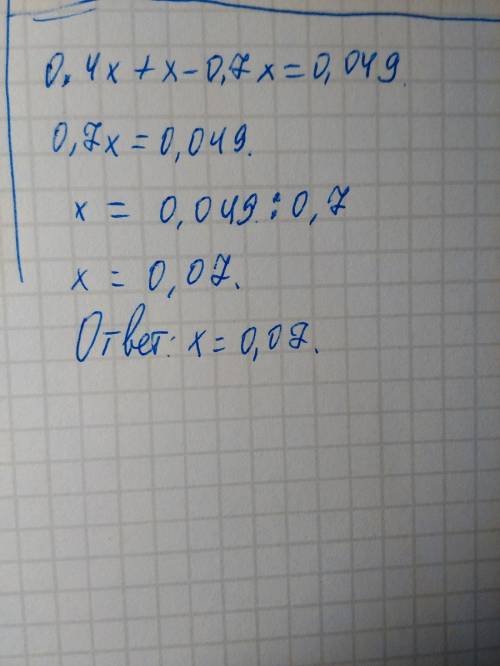 0,4x+x-0,7x=0,049.
0,7x=0,049.
x = 0,049:0,7
x = 0,07.
Ответ: x=0,07.